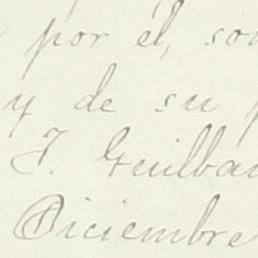 por él, 
y de su
J. Guilbau
Diciembre